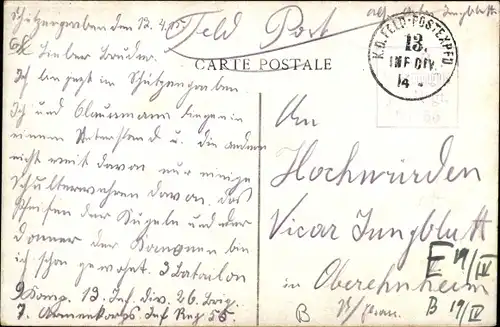 Schützengraben den 13. 4. 15
Feld Post
abs. Jungblutt
Lieber Bruder.
CARTE POSTALE
K.D. FELD-POSTEXPED.
13.
INF. DIV.
14 4
Ich liege jetzt im Schützengraben.
Ich und Claussmann liegen in
einem Unterstand u. die andern
nicht weit davon nur einige
Schulterwehren davon, das
Pfeifen der Kugeln und der
donner der Kanonen bin
ich schon gewohnt. 3 Bataillon
9 Komp. 13. Inf. div. 26. Brig.
7. Armeekorps Inf Reg 55.
An
Hochwürden
Vicar Jungblutt
in Oberehnheim
E 19/IV
B
B 19/IV